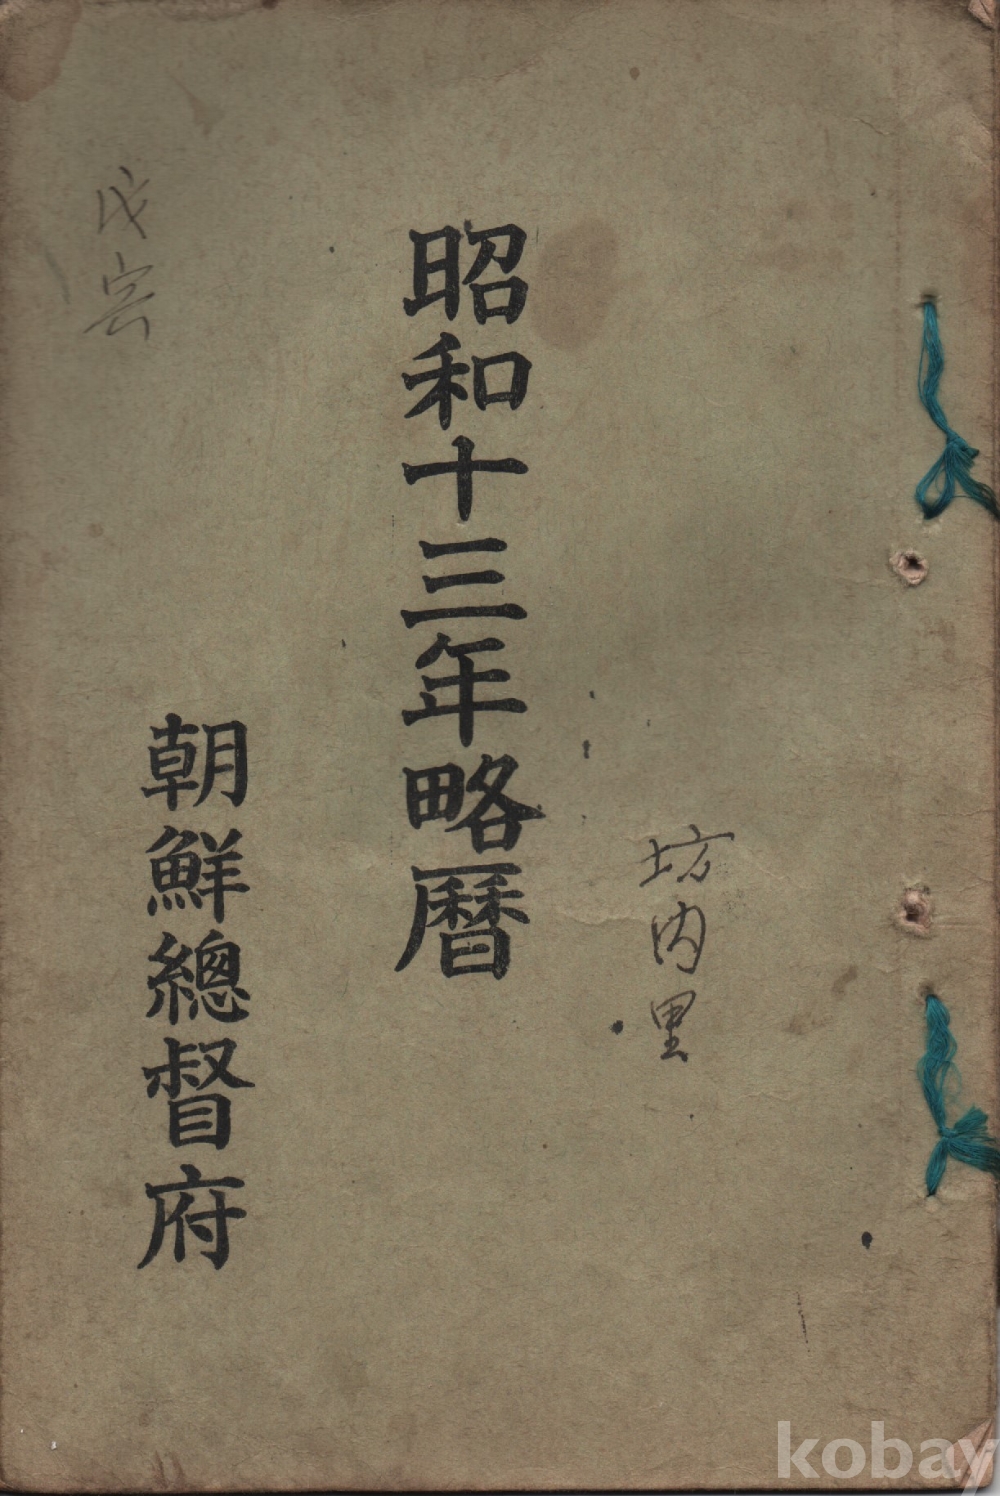 坊内里
昭和十三年略曆
朝鮮總督府
戊寅
kobay